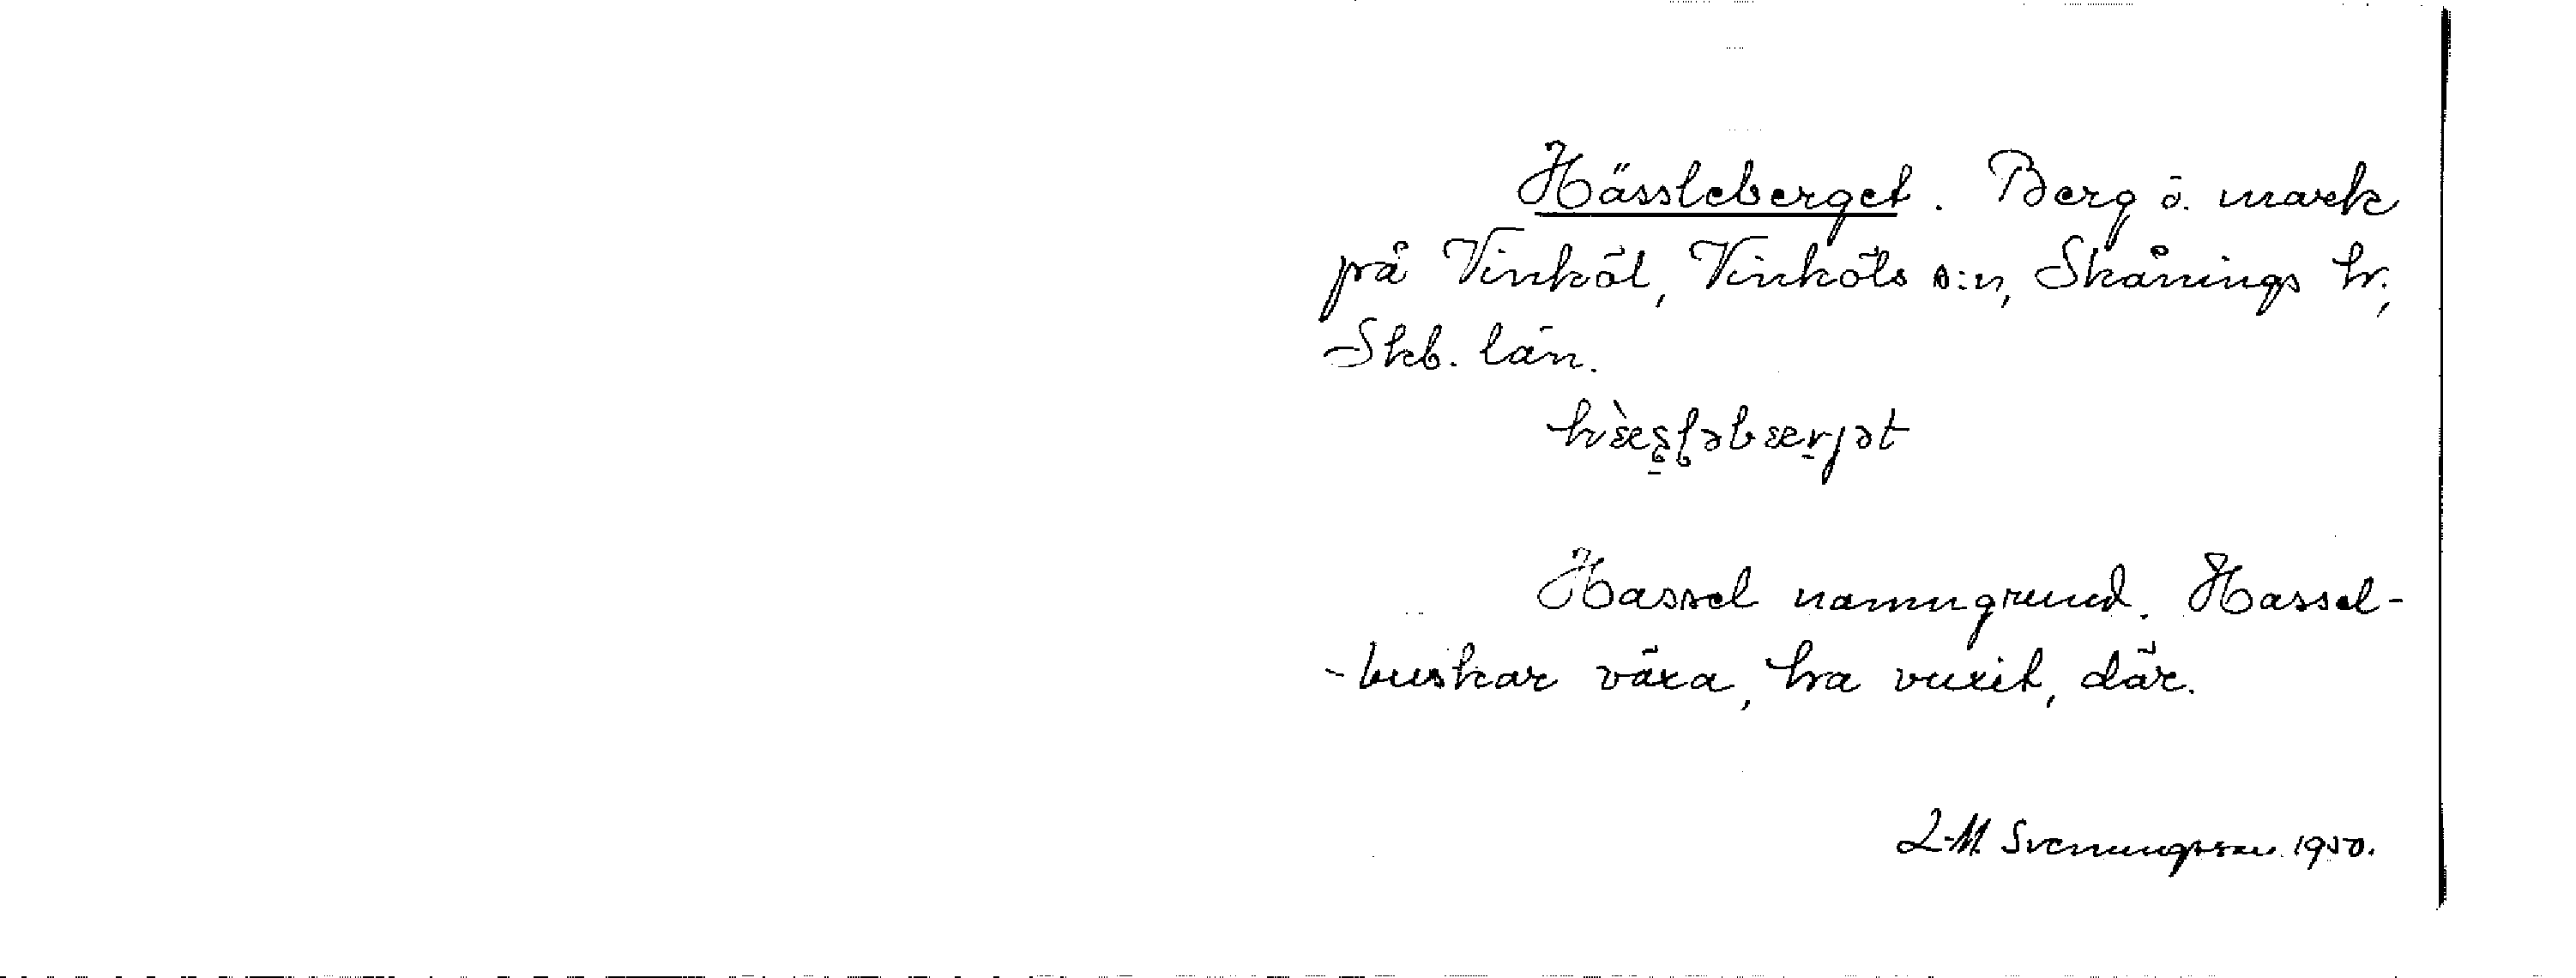 Hässleberget. Berg o. mark
på Vinköl, Vinköls s:n, Skånings hr.,
Skb. län.
hæ̀s̱ləbæṟjət
Hassel namngrund. Hassel-
-buskar växa, ha vuxit, där.
L-M. Svenungsson 1950.